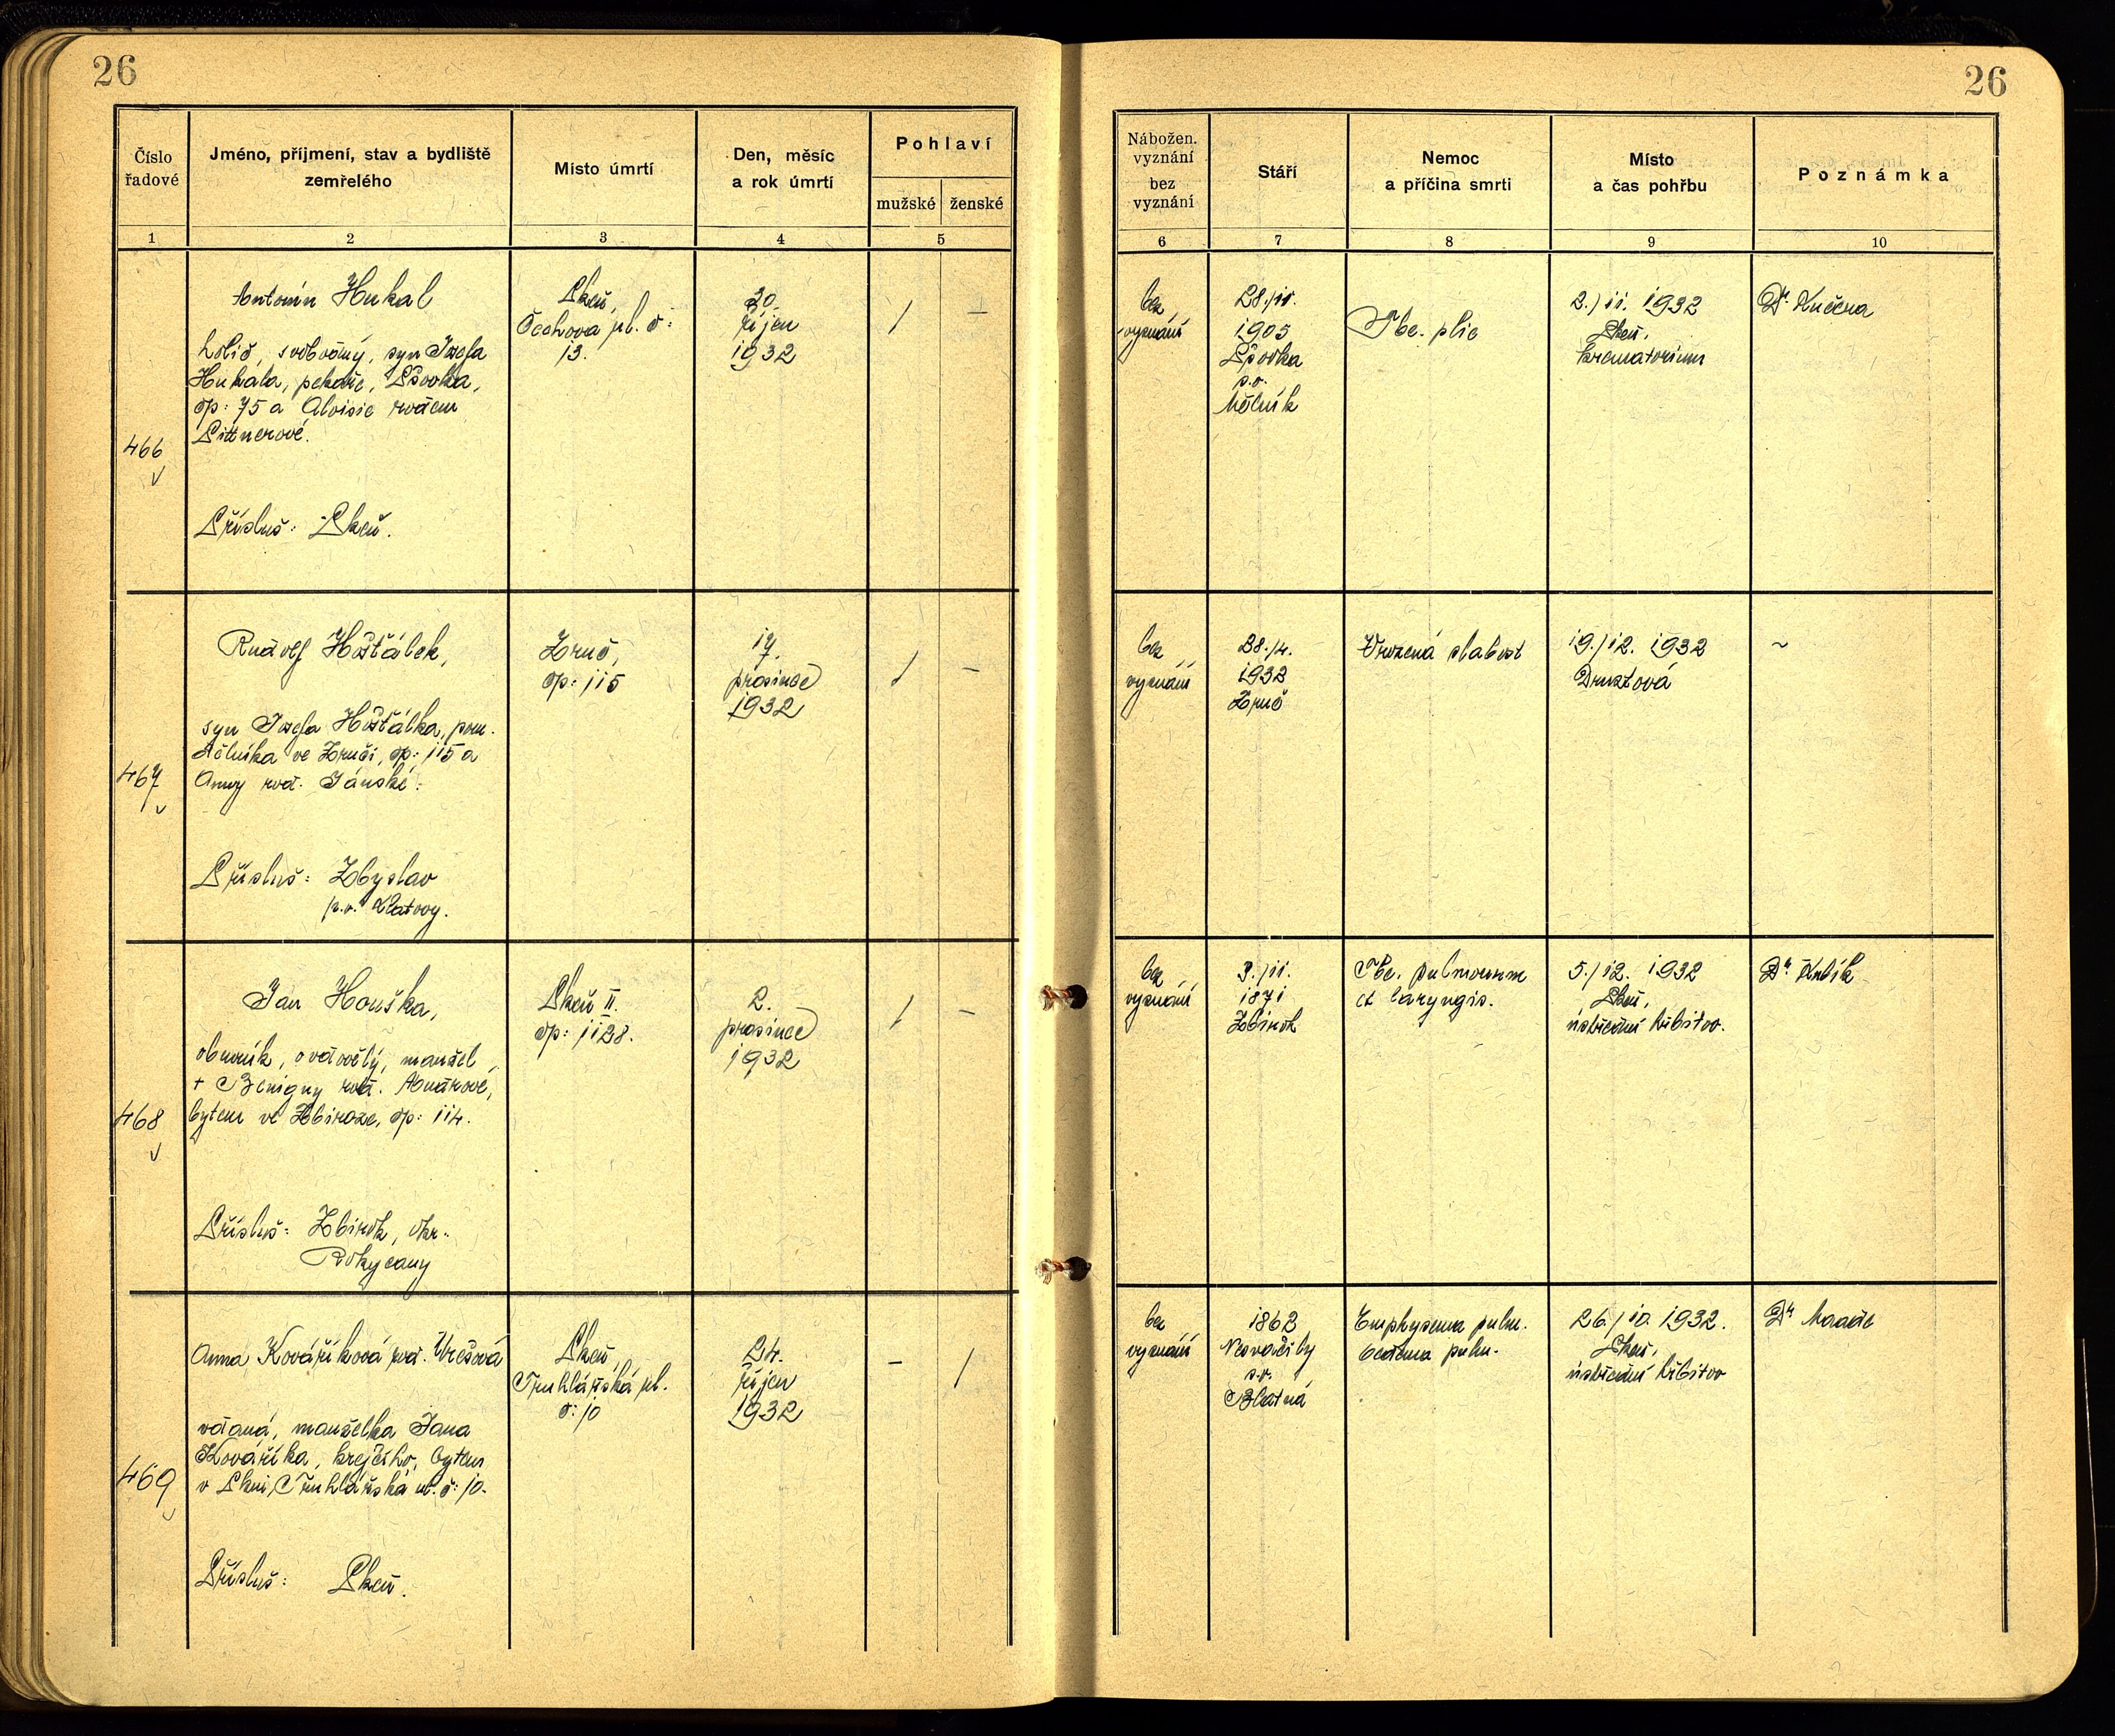 26
26
Číslo
řadové
Jméno, příjmení, stav a bydliště
zemřelého
Místo úmrtí
Den, měsíc
a rok úmrtí
Pohlaví
mužské
ženské
1
2
3
4
5
Nábožen.
vyznání
bez
vyznání
Stáří
Nemoc
a příčina smrti
Místo
a čas pohřbu
Poznámka
6
7
8
9
10
466
Antonín Hukal
holič, svobodný, syn Josefa
Hukala, pekaře, Pšovka,
čp: 75 a Aloisie rozené
Pittnerové.
Přísluš: Plzeň.
Plzeň,
Čechova ul. č:
13.
30.
říjen
1932
/
–
bez
vyznání
28./11.
1905
Pšovka
p.o.
Mělník
Tbc. plic
2./11. 1932
Plzeň,
krematorium
Dr. Kučera
467
Rudolf Hošťálek,
syn Josefa Hošťálka, pom.
dělníka ve Zruči, čp: 115 a
Anny roz. Jánské:
Přísluš: Zbyslav
p.o. Klatovy.
Zruč,
čp: 115
17.
prosince
1932
/
–
bez
vyznání
28./4.
1932
Zruč
Vrozená slabost
19./12. 1932
Druztová
~
468
Jan Houška,
obuvník, ovdovělý, manžel
+ Benigny roz.
bytem ve Zbiroze, čp: 114.
Přísluš: Zbiroh, okr.
Rokycany
Plzeň II.
čp: 1128.
2.
prosince
1932
/
–
bez
vyznání
3./11.
1871
Zbiroh
Tbc. pulmonum
et laryngis.
5./12. 1932
Plzeň,
ústřední hřbitov.
Dr.
469
Anna Kovaříková roz. Urešová
vdaná, manželka Jana
Kovaříka, krejčího, bytem
v Plzni, Truhlářská ul. č: 10.
Přísluš: Plzeň.
Plzeň,
Truhlářská ul.
č: 10
24.
říjen
1932
–
/
bez
vyznání
1862
p.o.
Blatná
Emphysema pulm.
oedema pulm.
26./10. 1932.
Plzeň,
ústřední hřbitov
Dr.